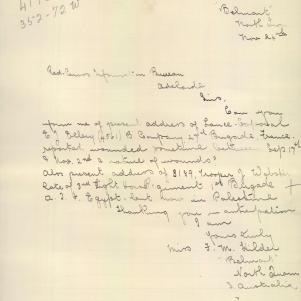 352-72W
"Belmont"
North
Nov 24th
Red Cross Information Bureau
Adelaide
Sirs,
Can you
inform me of present address of Lance Corporal
(4561) B Company 27th Brigade France.
reported wounded sometime between Sep 17th
& Nov. 2nd & nature of wounds
Also present address of 3189, Trooper Webster
late of 3rd Light 1st Brigade
A.I.F. Egypt. but now in Palestine
Thanking you in anticipation
I am
Yours truly
Miss F. M. Hilder
"Belmont"
North
S. Australia